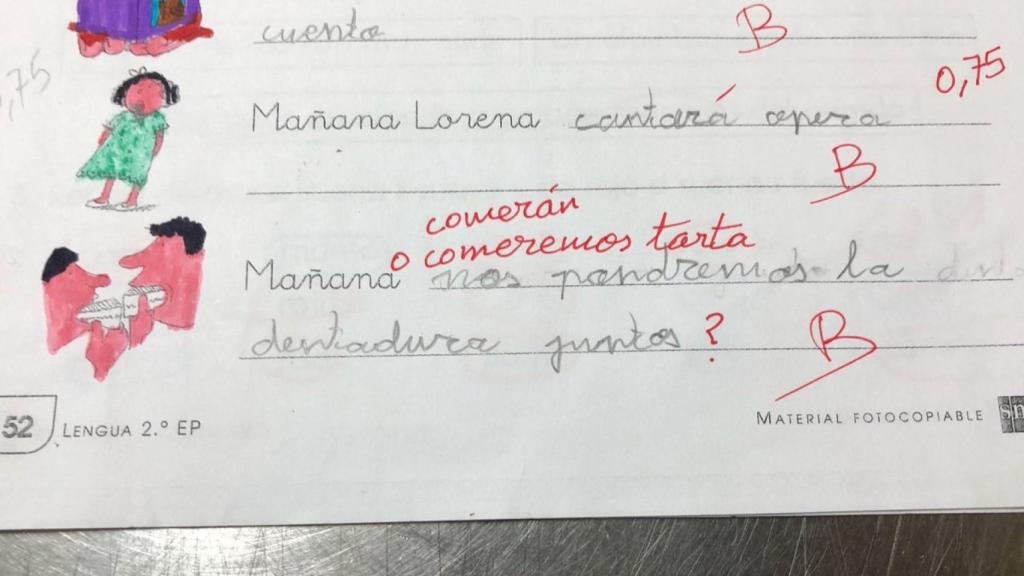 cuento
B
0,75
,75
Mañana Lorena cantará opera
B
comerán
o comeremos tarta
Mañana nos pondremos la
dentiadura juntos ?
B
52 LENGUA 2.º EP
MATERIAL FOTOCOPIABLE sm